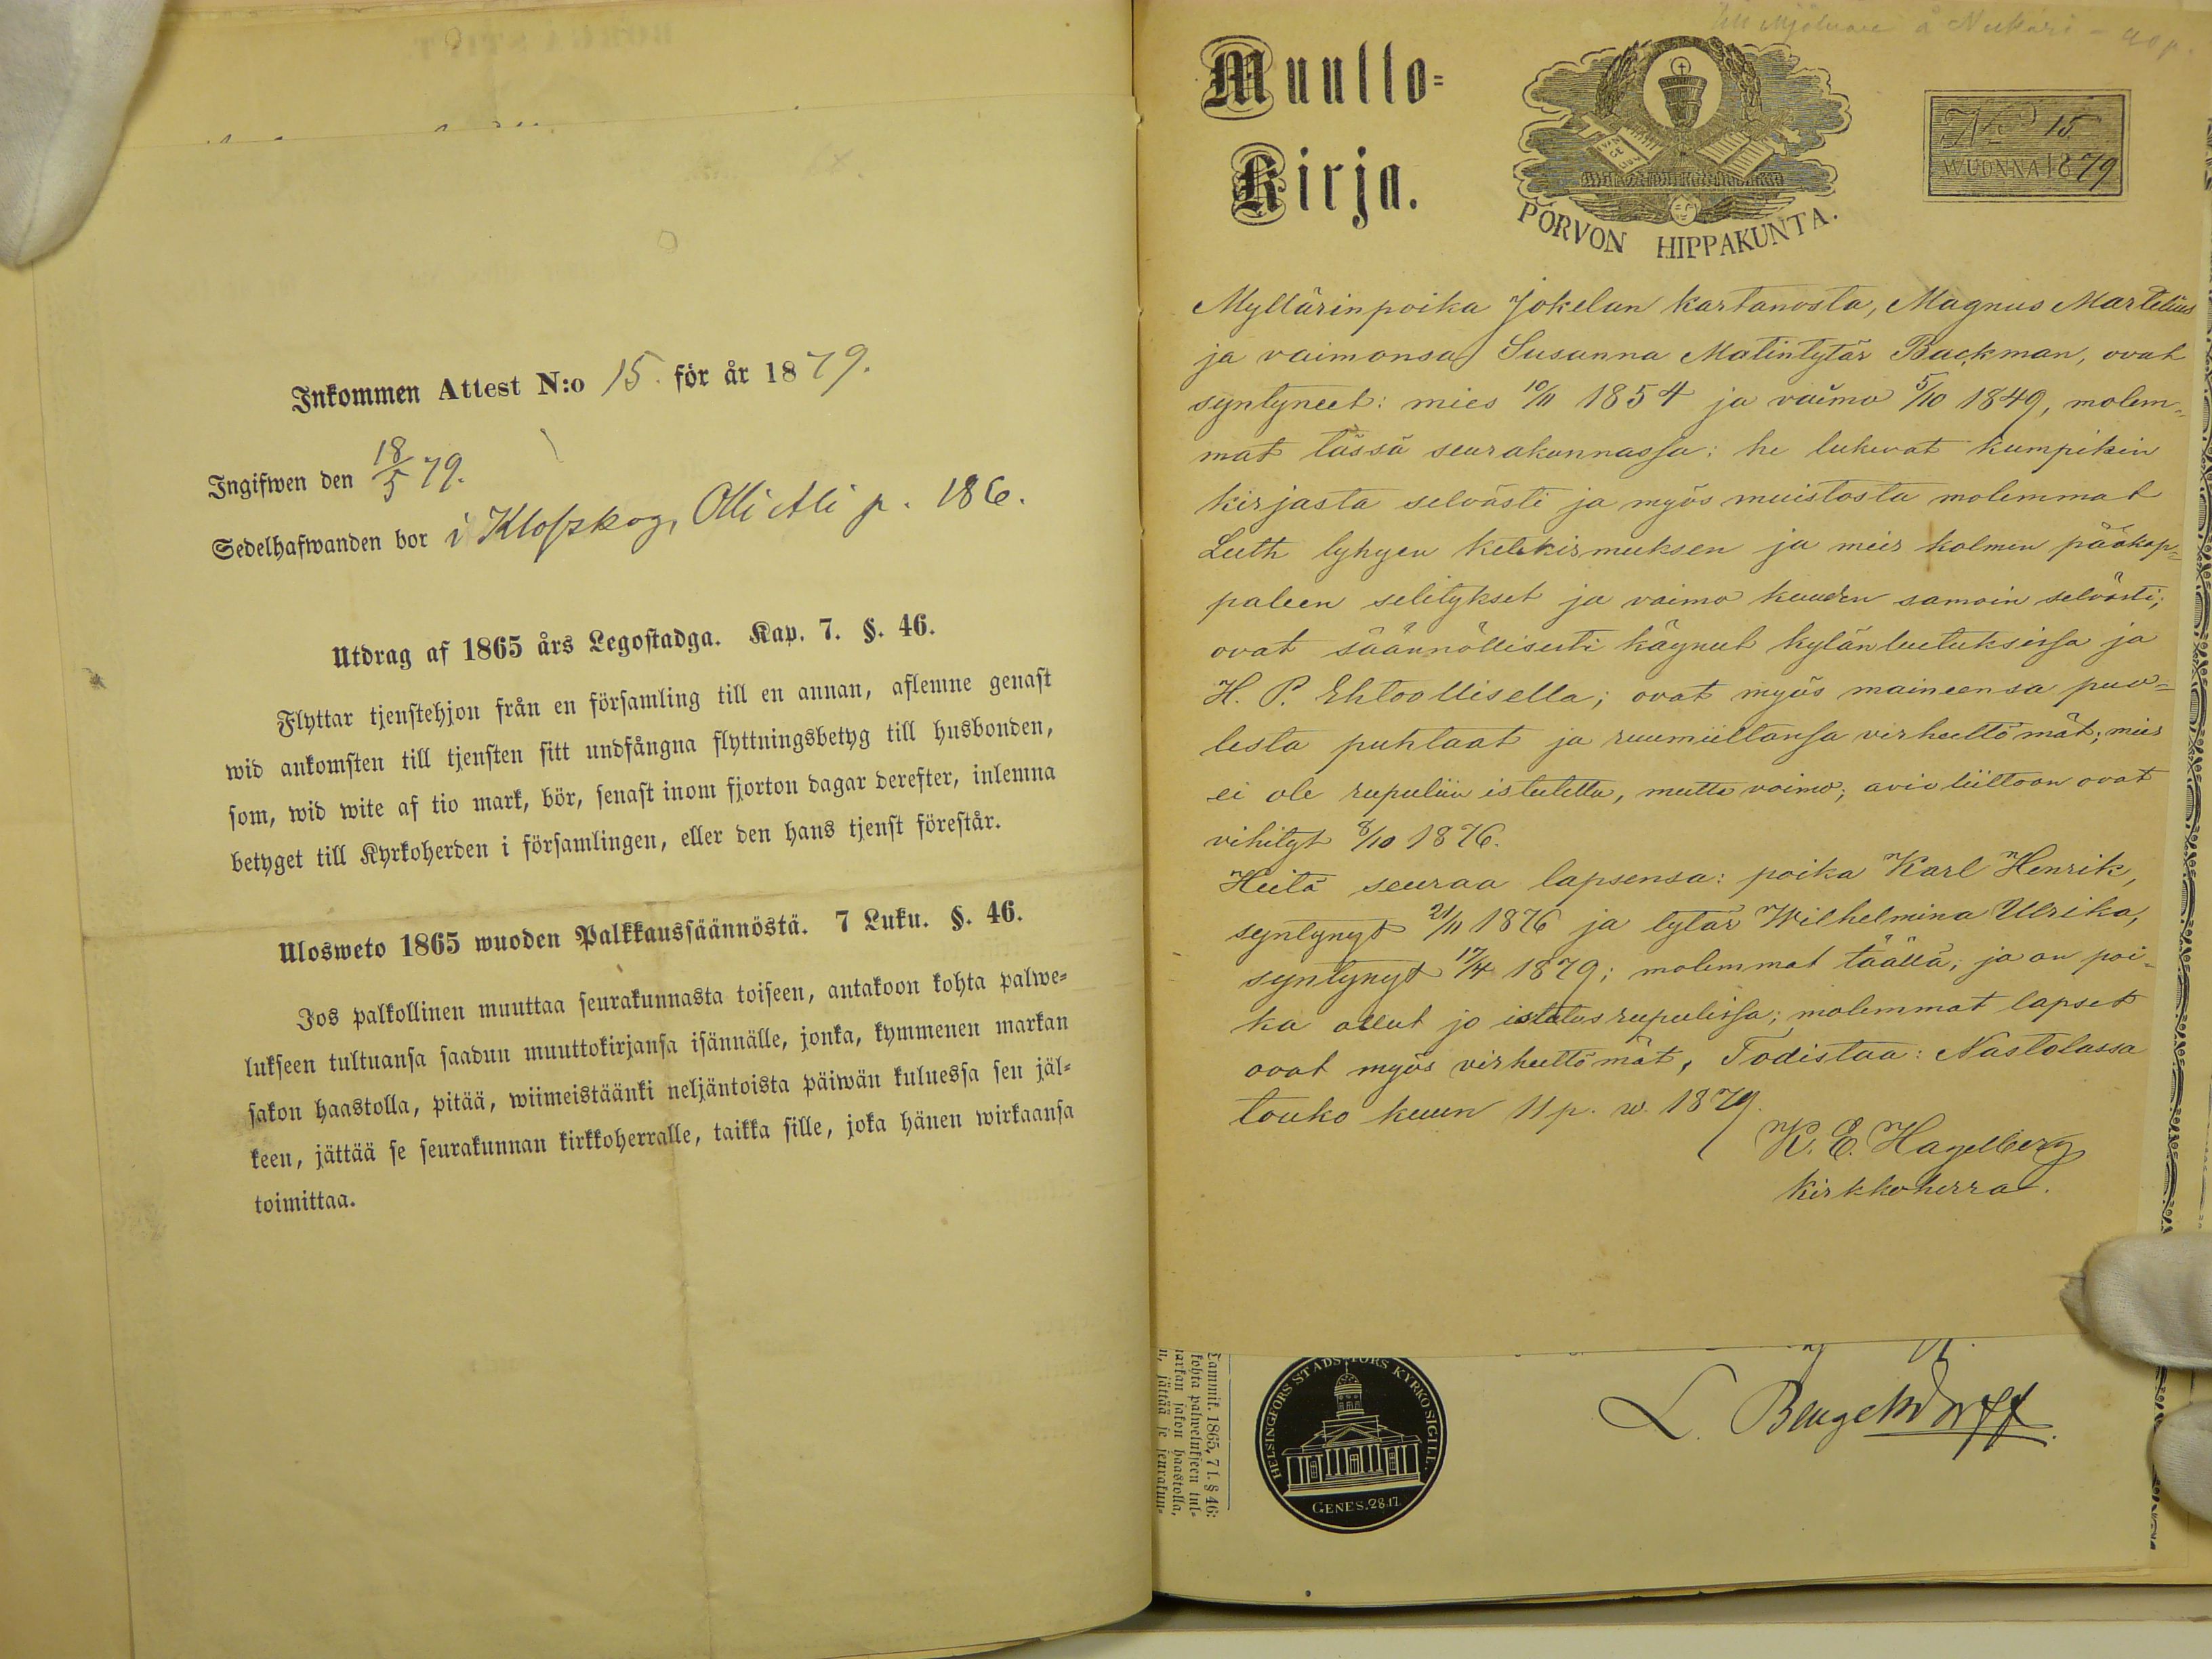 Inkommen Attest N:o 15. för år 1879.
Ingifwen den 18/5 79.
Sedelhafwanden bor i Klofskog, Olli Ali p. 186.
Utdrag af 1865 års Legostadga. Kap. 7. §. 46.
Flyttar tjenstehjon från en församling till en annan, aflemne genast
wid ankomsten till tjensten sitt undfångna flyttningsbetyg till husbonden,
som, wid wite af tio mark, bör, senast inom fjorton dagar derefter, inlemna
betyget till Kyrkoherden i församlingen, eller den hans tjenst förestår.
Ulosweto 1865 wuoden Palkkaussäännöstä. 7 Luku. §. 46.
Jos palkollinen muuttaa seurakunnasta toiseen, antakoon kohta palwe=
lukseen tultuansa saadun muuttokirjansa isännälle, jonka, kymmenen markan
sakon haastolla, pitää, wiimeistäänki neljäntoista päiwän kuluessa sen jäl=
keen, jättää se seurakunnan kirkkoherralle, taikka sille, joka hänen wirkaansa
toimittaa.
Till Mjölnare å Nukari - 40 p.
Muutto=
Kirja.
EVAN
GE
LIUM
PORVON HIPPAKUNTA.
No 15
WUONNA 1879
Myllärinpoika Jokelan kartanosta, Magnus Martelius
ja vaimonsa Susanna Matintytär Backman, ovat
syntyneet: mies 10/11 1854 ja vaimo 5/10 1849, molem=
mat tässä seurakunnassa: he lukevat kumpikin
kirjasta selvästi ja myös muistosta molemmat
Luth lyhyen Katekismuksen ja mies kolmen pääkap=
paleen selitykset ja vaimo kuuden samoin selvästi;
ovat säännöllisesti käynut kylänluetuksissa ja
H. P. Ehtoollisella; ovat myös maineensa puo=
lesta puhtaat ja ruumiiltansa virheettömät; mies
ei ole rupuliin istutettu, mutta vaimo; avioliittoon ovat
vihityt 8/10 1876.
Heitä seuraa lapsensa: poika Karl Henrik,
syntynyt 21/11 1876 ja tytär Wilhelmina Ulrika,
syntynyt 17/4 1879; molemmat täällä; ja on poi=
ka ollut jo istutus rupulissa; molemmat lapset
ovat myös virheettömät, Todistaa: Nastolassa
touko kuun 11 p. w. 1879.
K. E. Hagelberg
Kirkkoherra.
Tammik. 1865, 7 l. § 46:
kohta palwelukseen tul=
markan sakon haastolla,
n, jättää se seurakun=
HELSINGFORS STADS FÖRS KYRKO SIGILL.
GENES. 28.17.
L. Bengelsdorff.